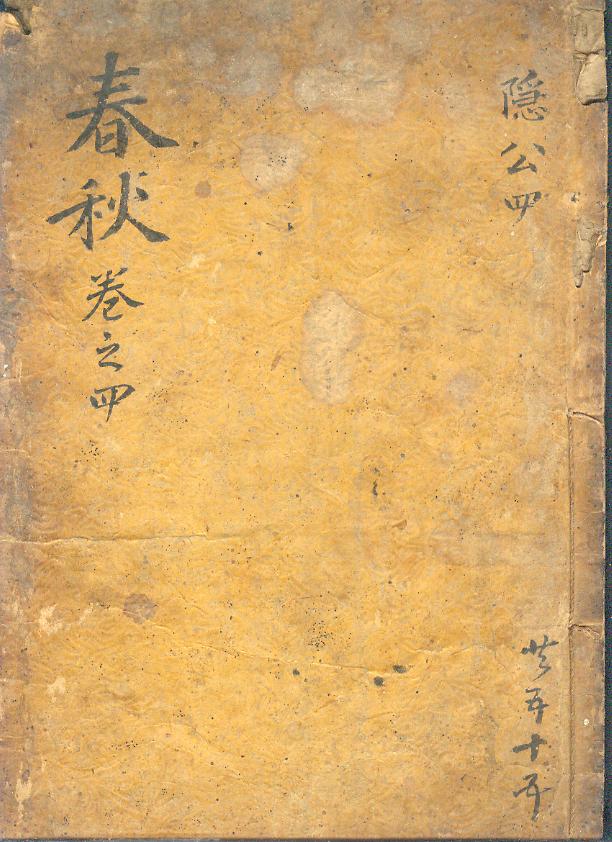 隠公四
共五十五
春秋卷之四